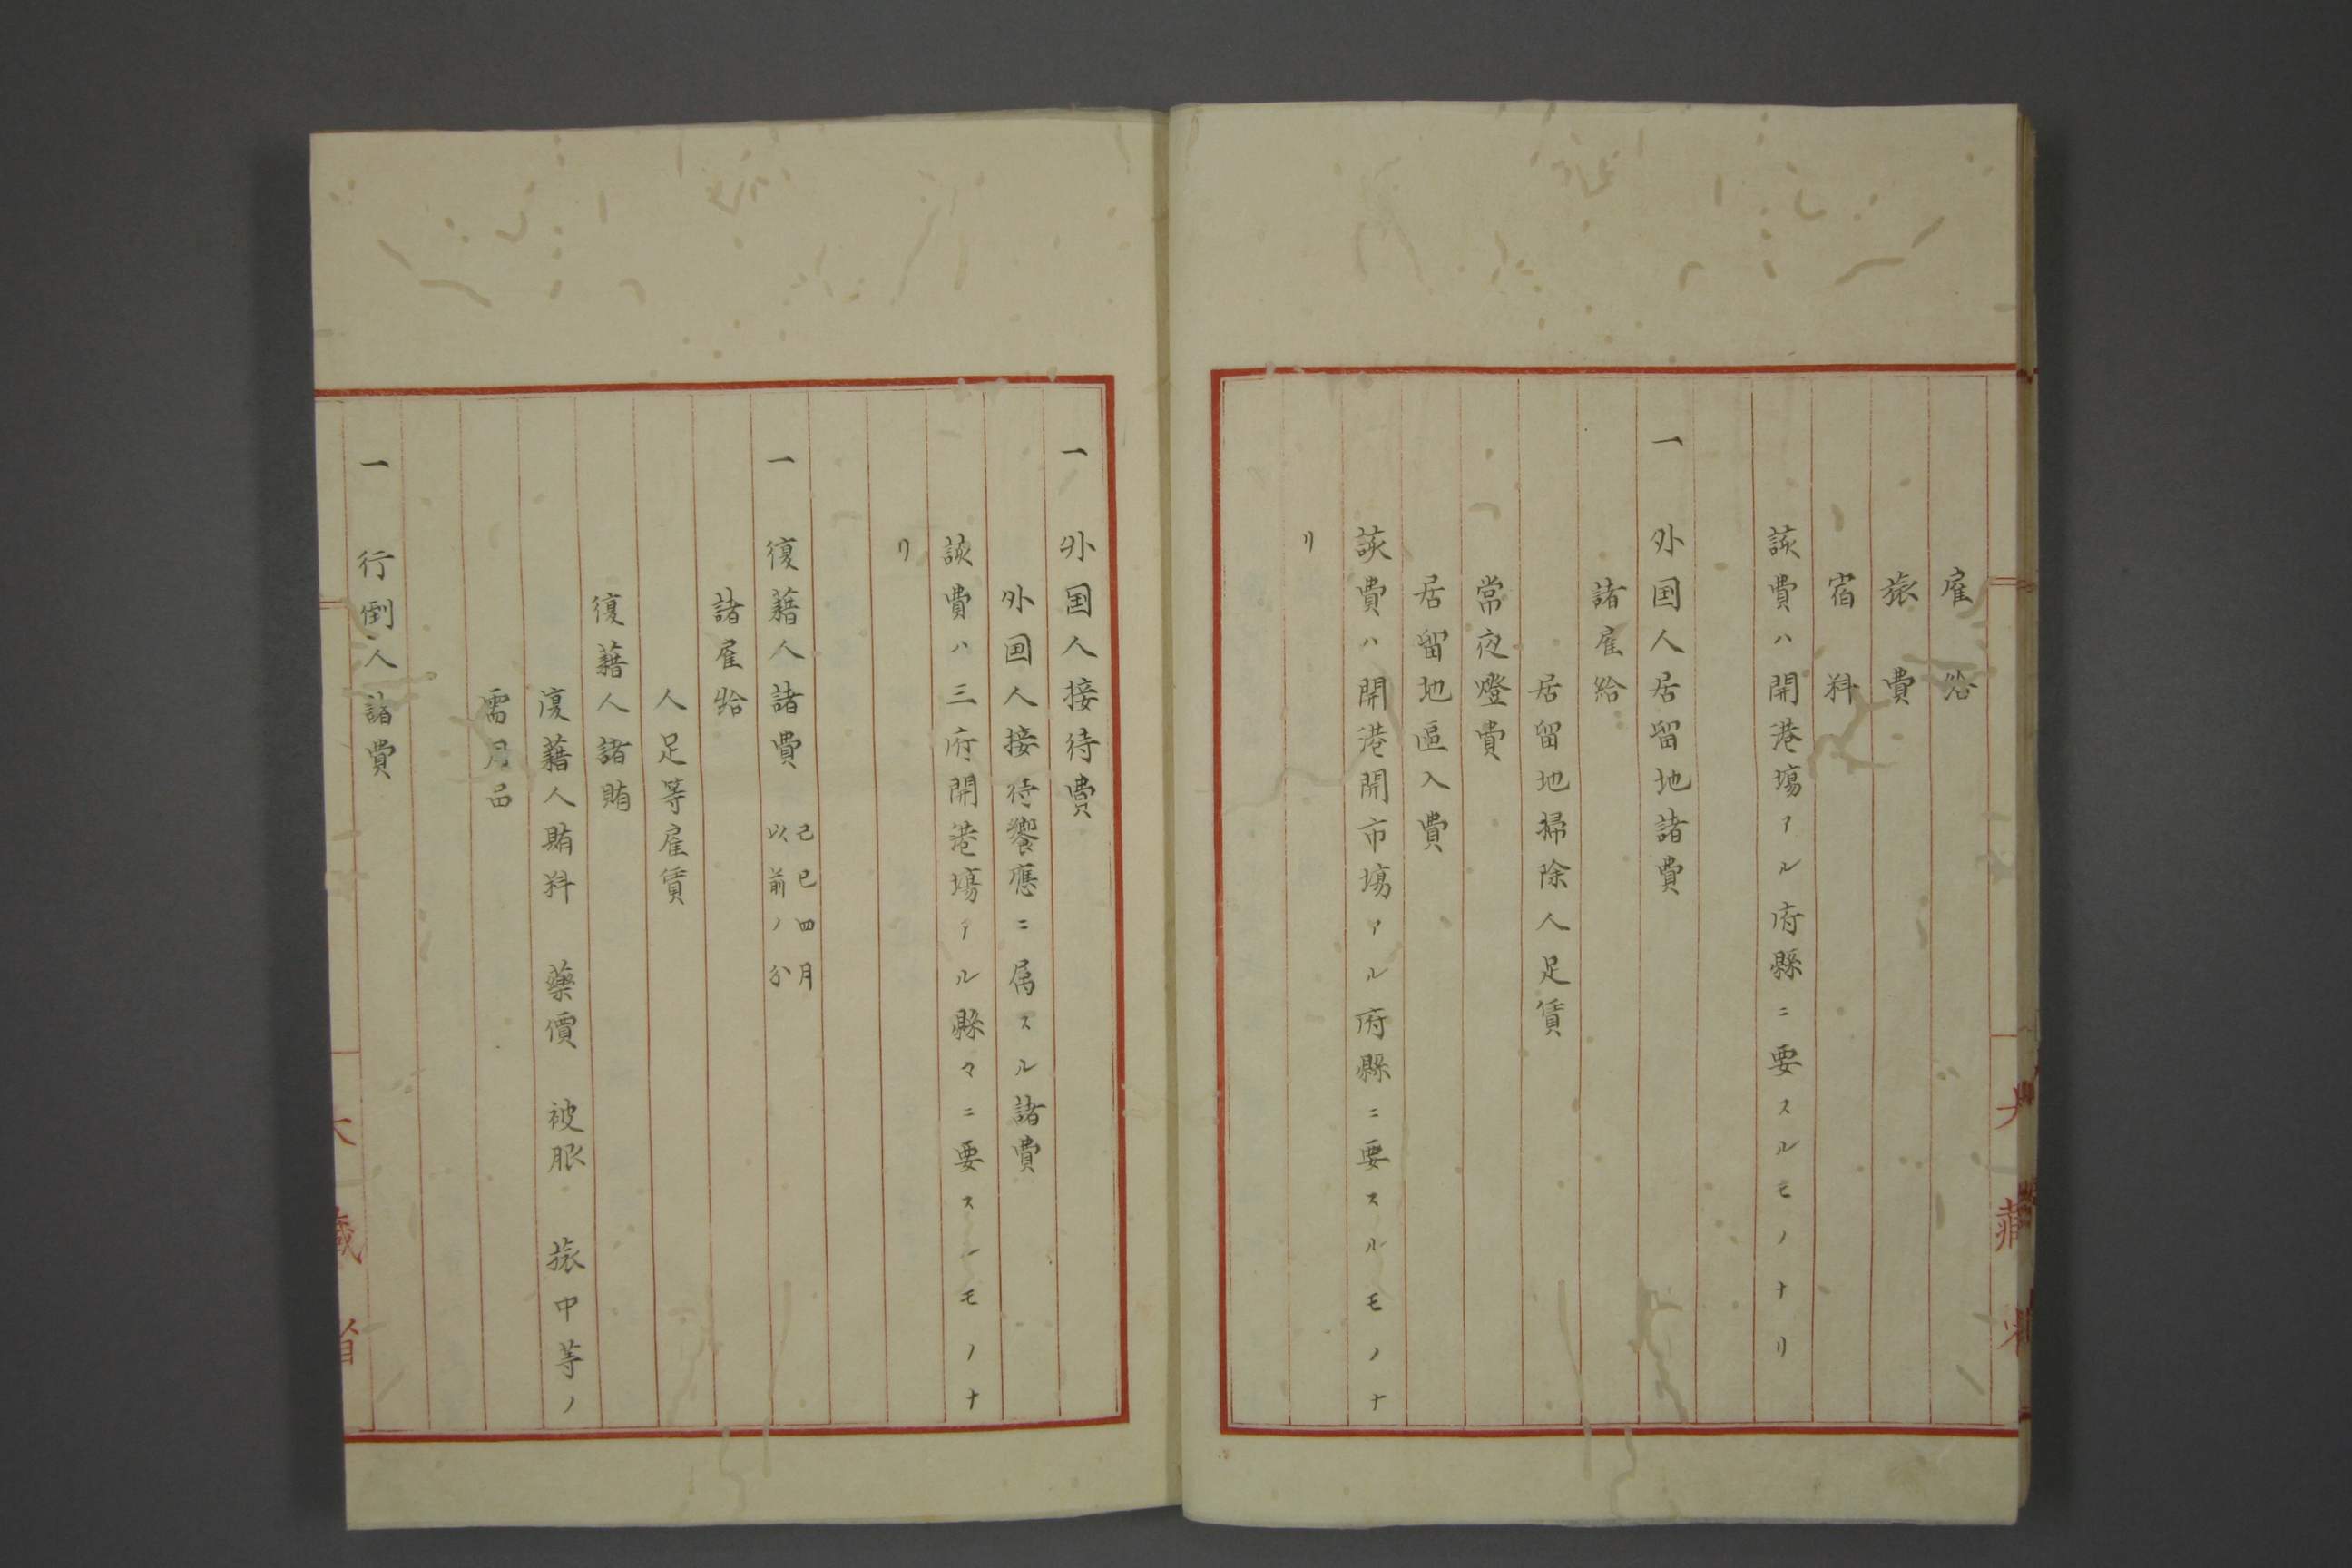 雇給
旅費
宿料
該費ハ開港場アル府縣ニ要スルモノナリ
一 外国人居留地諸費
諸雇給
居留地掃除人足賃
常夜燈費
居留地區入費
該費ハ開港開市場アル府縣ニ要スルモノナ
リ
一 外国人接待費
外国人接待饗應ニ属スル諸費
該費ハ三府開港場アル縣々ニ要スルモノナ
リ
一 復籍人諸費 己巳四月
以前ノ分
諸雇給
人足等雇賃
復籍人諸賄
復籍人賄料 藥價 被服 旅中等ノ
需用品
一 行倒人諸費
大藏省